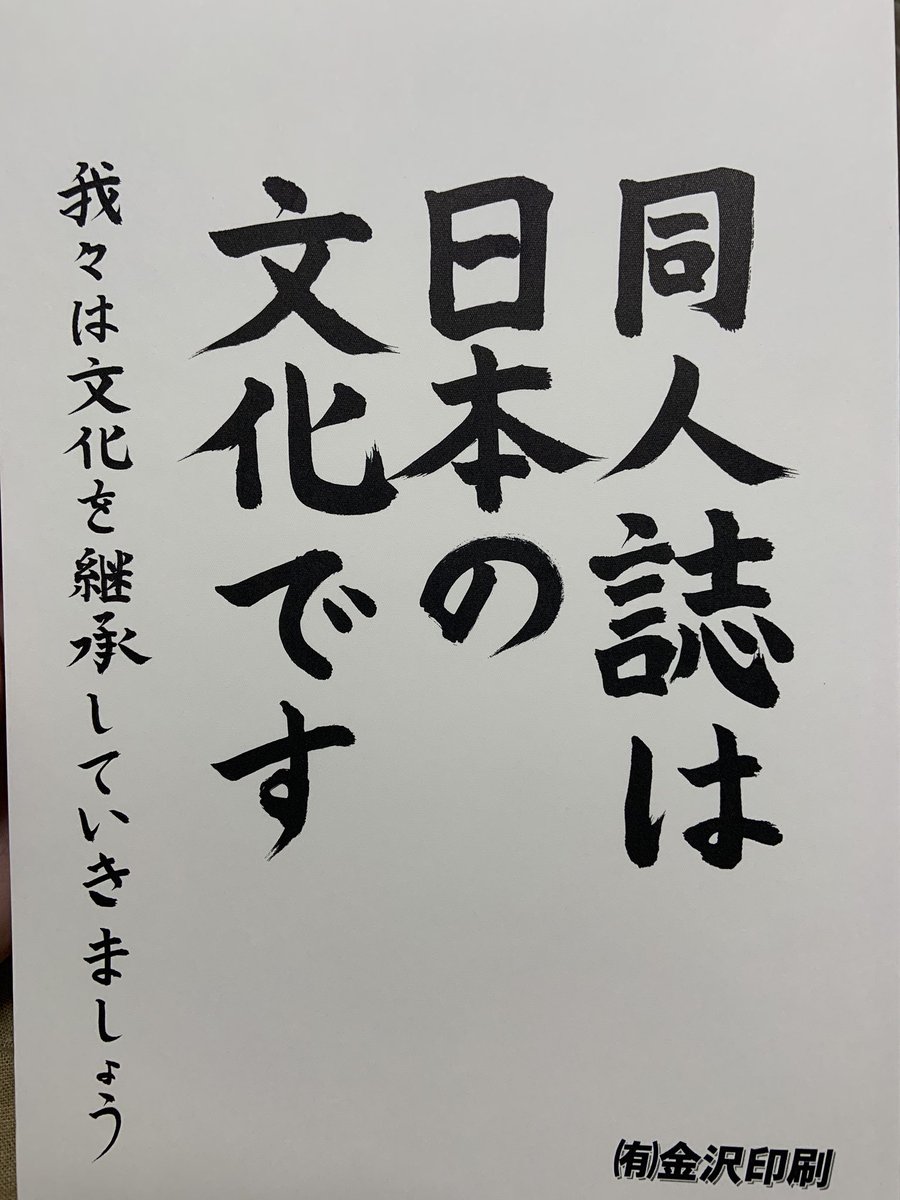 同人誌は
日本の
文化です
我々は文化を継承していきましょう
㈲金沢印刷